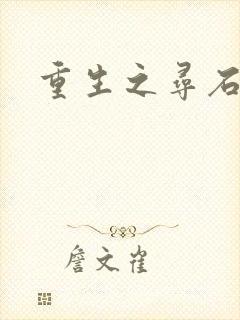 重生之寻石
詹文雀